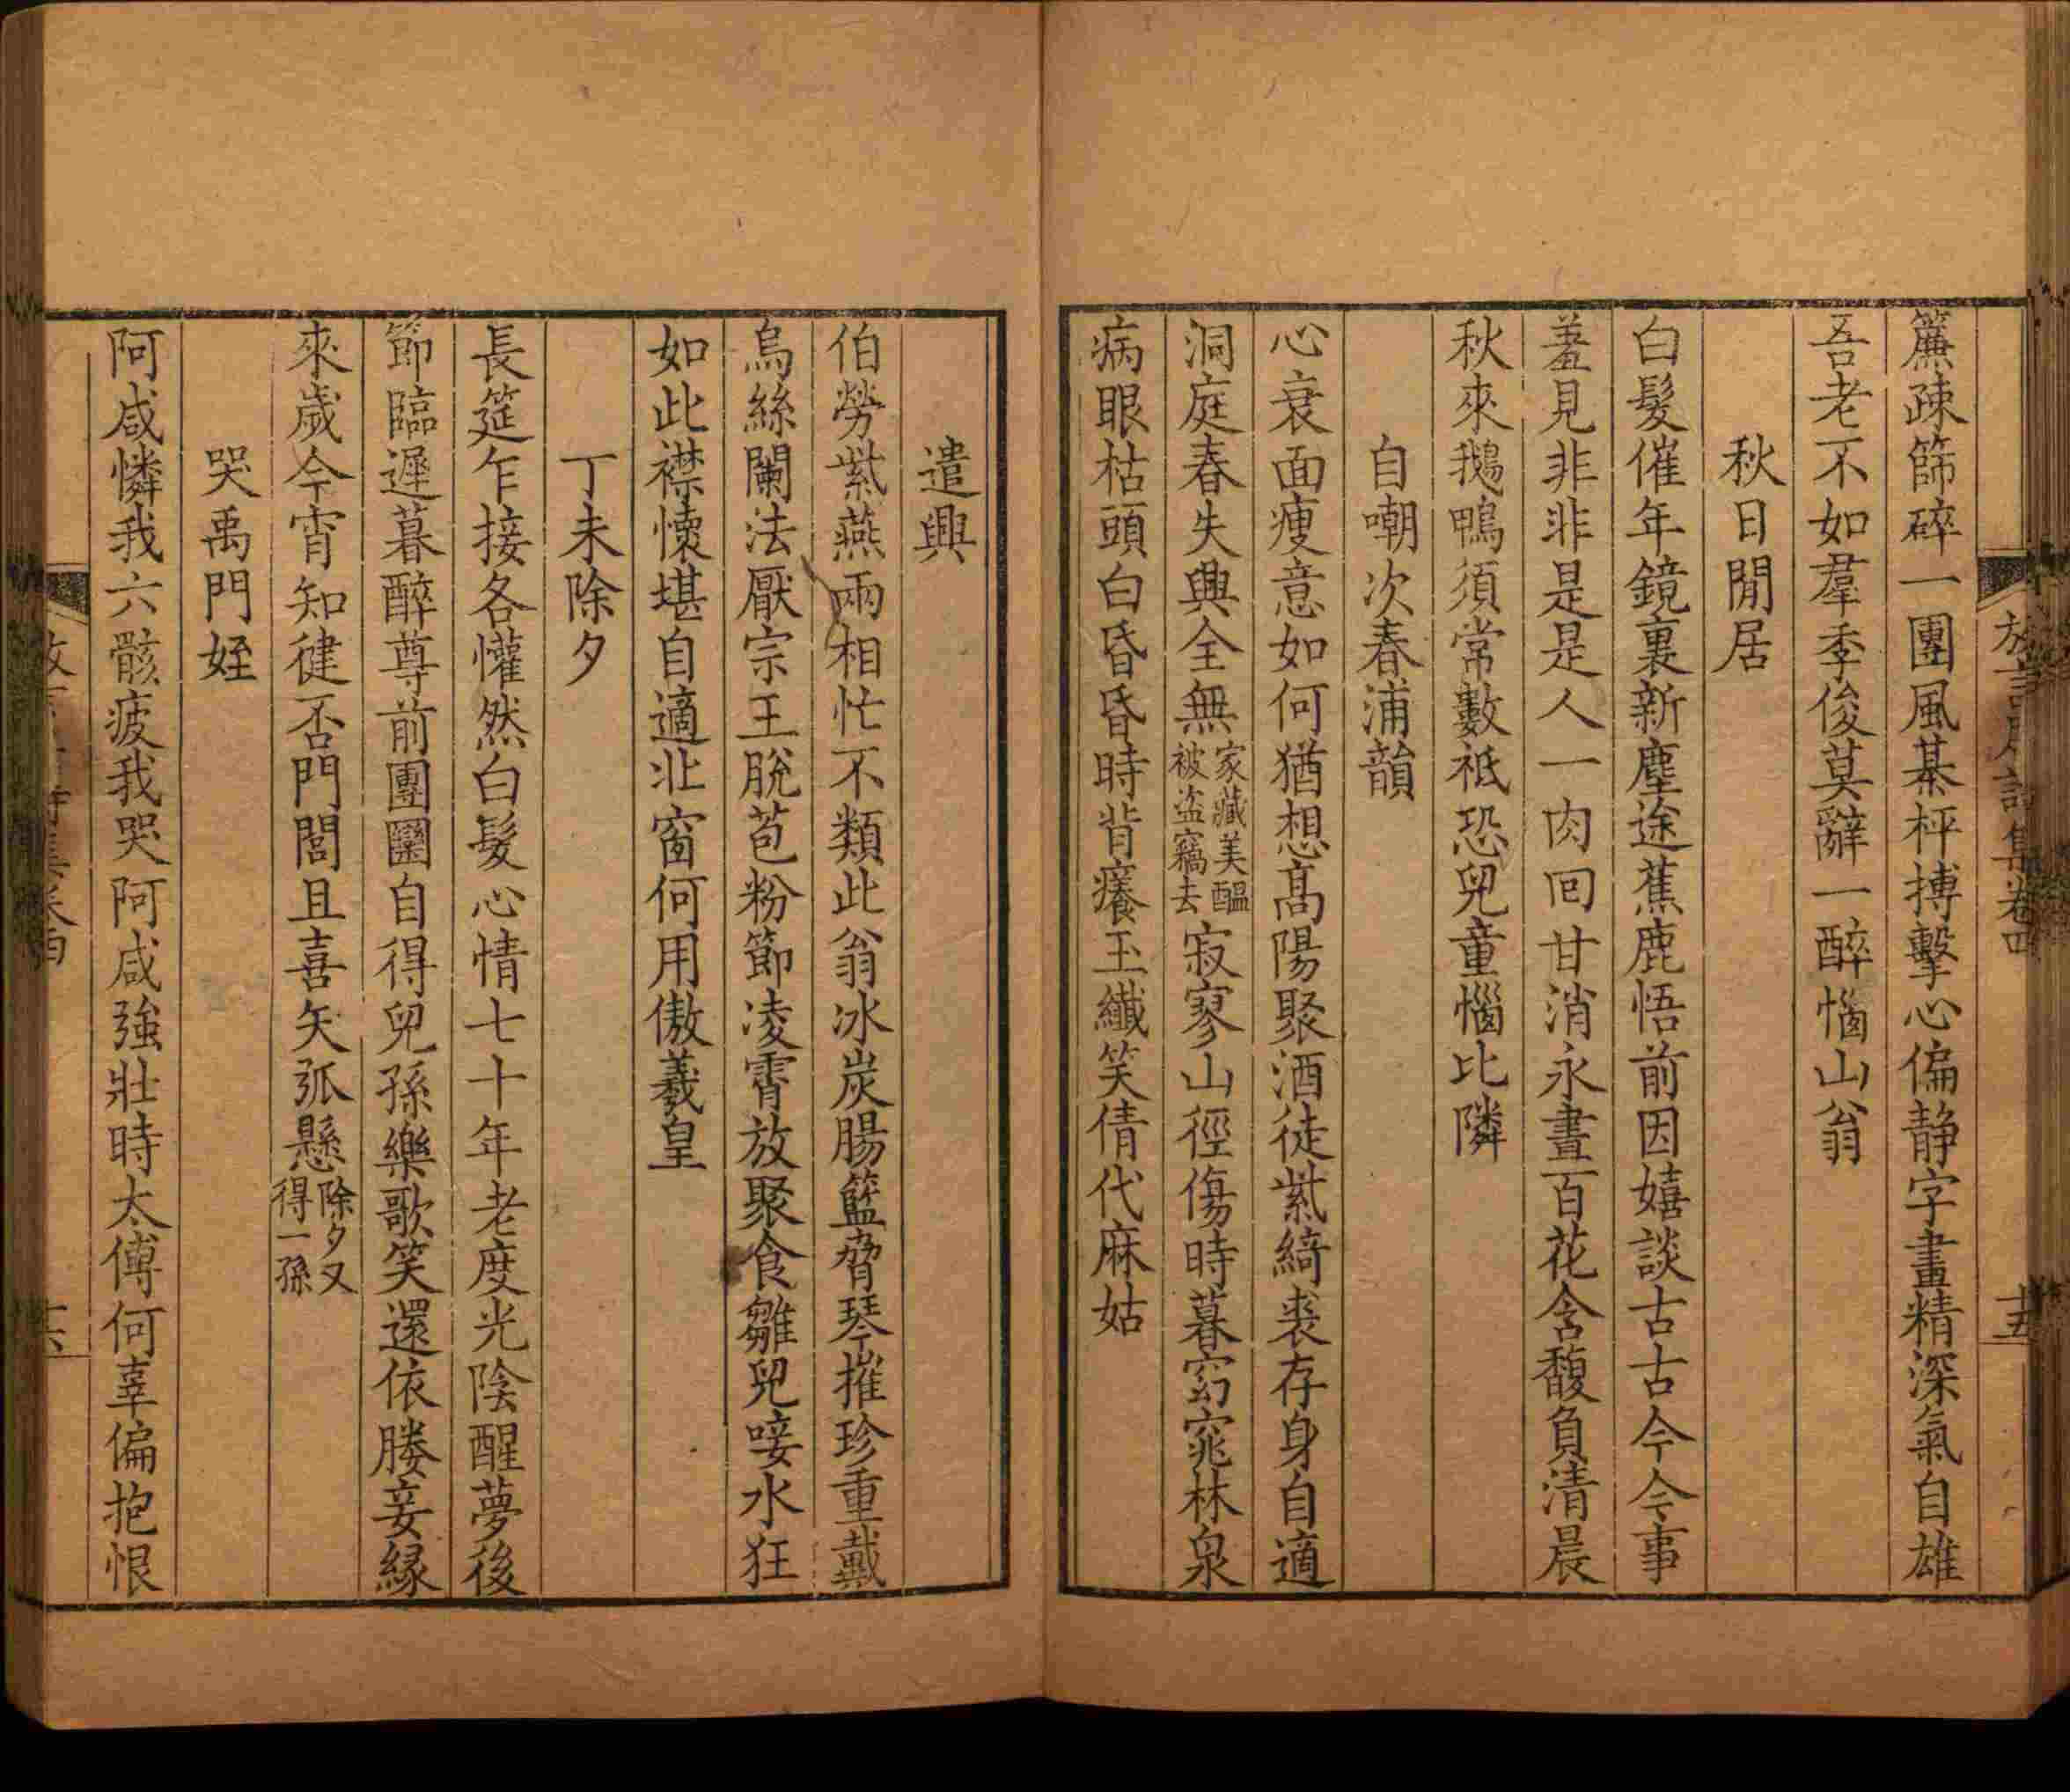 簾疎篩碎一團風棊枰搏擊心偏静字畫精深氣自雄
吾老不如羣季俊莫辭一醉惱山翁
秋日閒居
白髮催年鏡裏新塵途蕉鹿悟前因嬉談古古今今事
羞見非非是是人一肉回甘消永晝百花含馥負清晨
秋來鵝鴨須常數祇恐兒童惱比隣
自嘲次春浦韻
心衰面瘦意如何猶想髙陽聚酒徒紫綺裘存身自適
洞庭春失興全無家藏美醖被盗竊去寂寥山徑傷時暮窈窕林泉
病眼枯頭白昏昏時背癢玉纖笑倩代麻姑
遣興
伯勞紫燕兩相忙不類此翁冰炭腸籃轝琴摧珍重戴
烏絲闌法厭宗王脫苞粉節凌霄放聚食雛兒唼水狂
如此襟懷堪自適北窗何用傲羲皇
丁未除夕
長筵乍接各懽然白髮心情七十年老度光陰醒夢後
節臨遲暮醉尊前團圞自得兒孫樂歌笑還依媵妾緣
來歲今宵知健否門閭且喜矢弧懸除夕又得一孫
哭禹門姪
阿咸憐我六骸疲我哭阿咸強壯時太傅何辜偏抱恨
集卷四
十五
十六